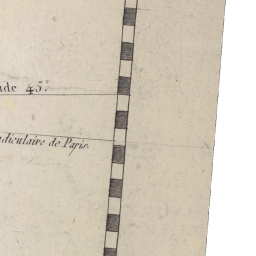 ude 45.°
diculaire de Paris.